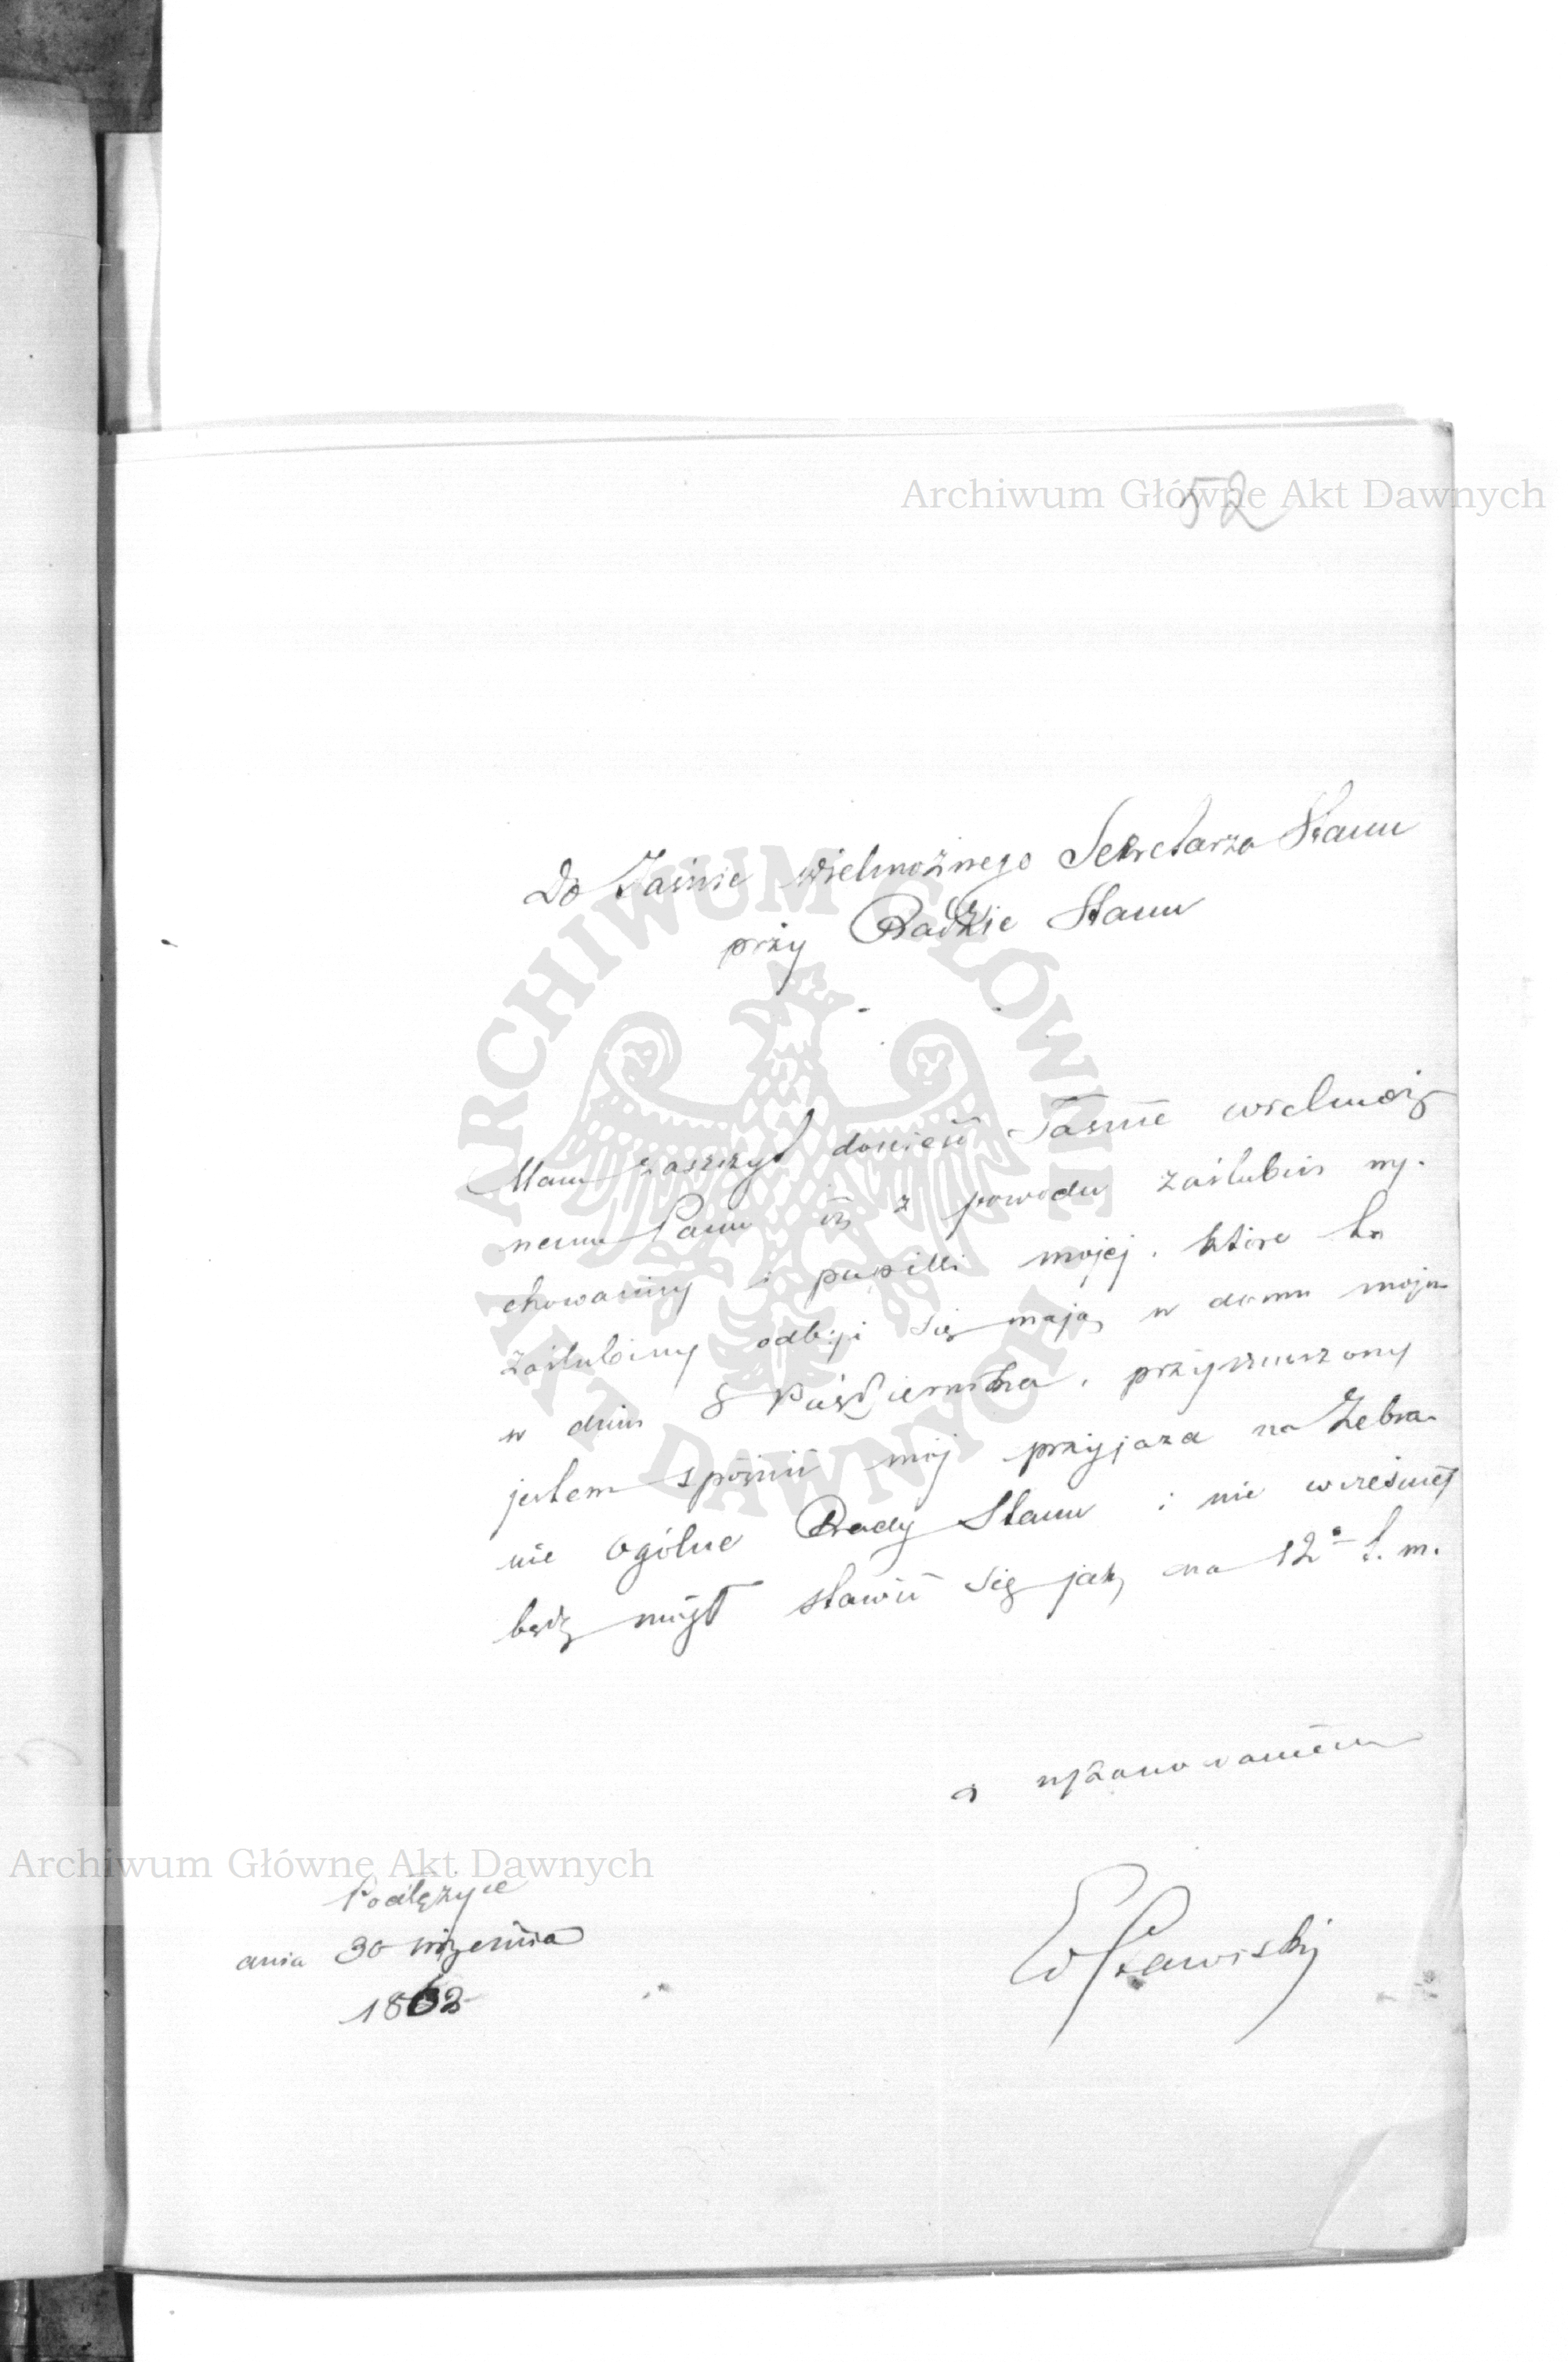 52
Archiwum Główne Akt Dawnych
Do Jaśnie Wielmożnego Sekretarza Stanu
przy Radzie Stanu
Mam zaszczyt donieść Jaśnie Wielmoż
nemu Panu iż z powodu zaślubin wy-
chowanicy i pupilli mojej, które to
zaślubiny odbyć się mają w domu moim
w dniu 8 Października, przymuszony
jestem spóźnić mój przyjazd na Zebra-
nie Ogólne Rady Stanu i nie wcześniej
będę mógł stawić się jak na 12o t. m.
z uszanowaniem
Archiwum Główne Akt Dawnych
Podłężyce
dnia 30 września
1862
ARCHIWUM GŁÓWNE AKT DAWNYCH